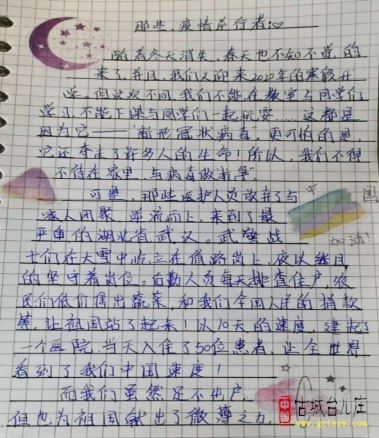 那些,疫情逆行者:
随着冬天消失,春天也不知不觉的
来了,并且,我们又迎来2020年的寒假开
学,但这次不同,我们不能在教室与同学们
学习,不能下课与同学们一起玩耍……这都是
因为它——"新形冠状病毒",更可怕的是,
它还夺走了许多人的生命!所以,我们不得
不待在家里,与病毒做斗争。
可是,那些医护人员放弃了与
家人团聚,逆流而上,来到了最
严重的湖北省武汉,武警战
士们在大雪中屹立在值路岗上,夜以继日
的坚守着岗位,后勤人员每天排查住户,农
民们低价售出蔬菜,和我们全国人民的捐款
,让祖国站了起来!以10天的速度,建起了
一个医院,当天入住了50位患者,让全世界
看到了我们中国速度!
而我们虽然足不出户,
但也为祖国献出了微薄之力,
国
加油!
古城台儿庄
www.gctezw.com